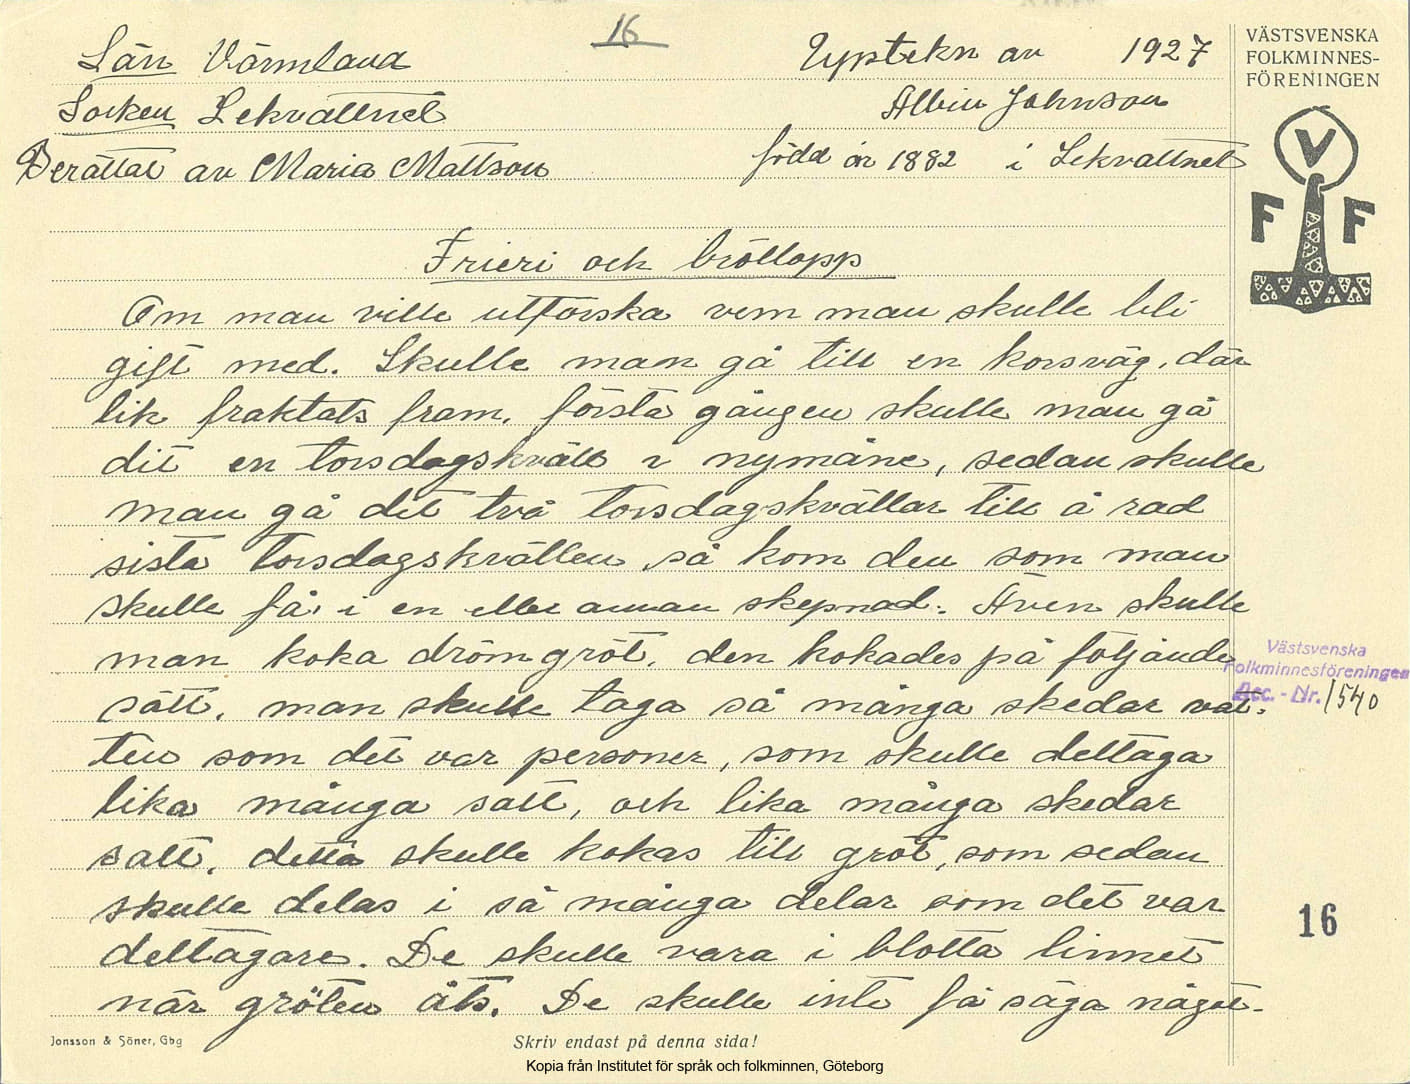 16
Län Värmland
Socken Lekvattnet
Berättat av Maria Mattson
Upptekn av 1927
Albin Johnson
född år 1882 i Lekvattnet
VÄSTSVENSKA
FOLKMINNES-
FÖRENINGEN
V
F F
Frieri och bröllopp
Om man ville utforska vem man skulle bli
gift med. Skulle man gå till en korsväg, där
lik fraktats fram, första gången skulle man gå
dit en torsdagskväll i nymåne, sedan skulle
man gå dit två torsdagskvällar till å rad
sista torsdagskvällen, så kom den som man
skulle få, i en eller annan skepnad. Även skulle
man koka drömgröt, den kokades på följande
sätt, man skulle taga så många skedar vat-
ten som det var personer, som skulle deltaga
lika många salt, och lika många skedar
salt, detta skulle kokas till gröt, som sedan
skulle delas i så många delar som det var
deltagare. De skulle vara i blotta linnet
när gröten åts. De skulle inte få säga något-
Västsvenska
Folkminnesföreningen
Acc. - Nr. 1540
16
Jonsson & Söner, Gbg
Skriv endast på denna sida!
Kopia från Institutet för språk och folkminnen, Göteborg